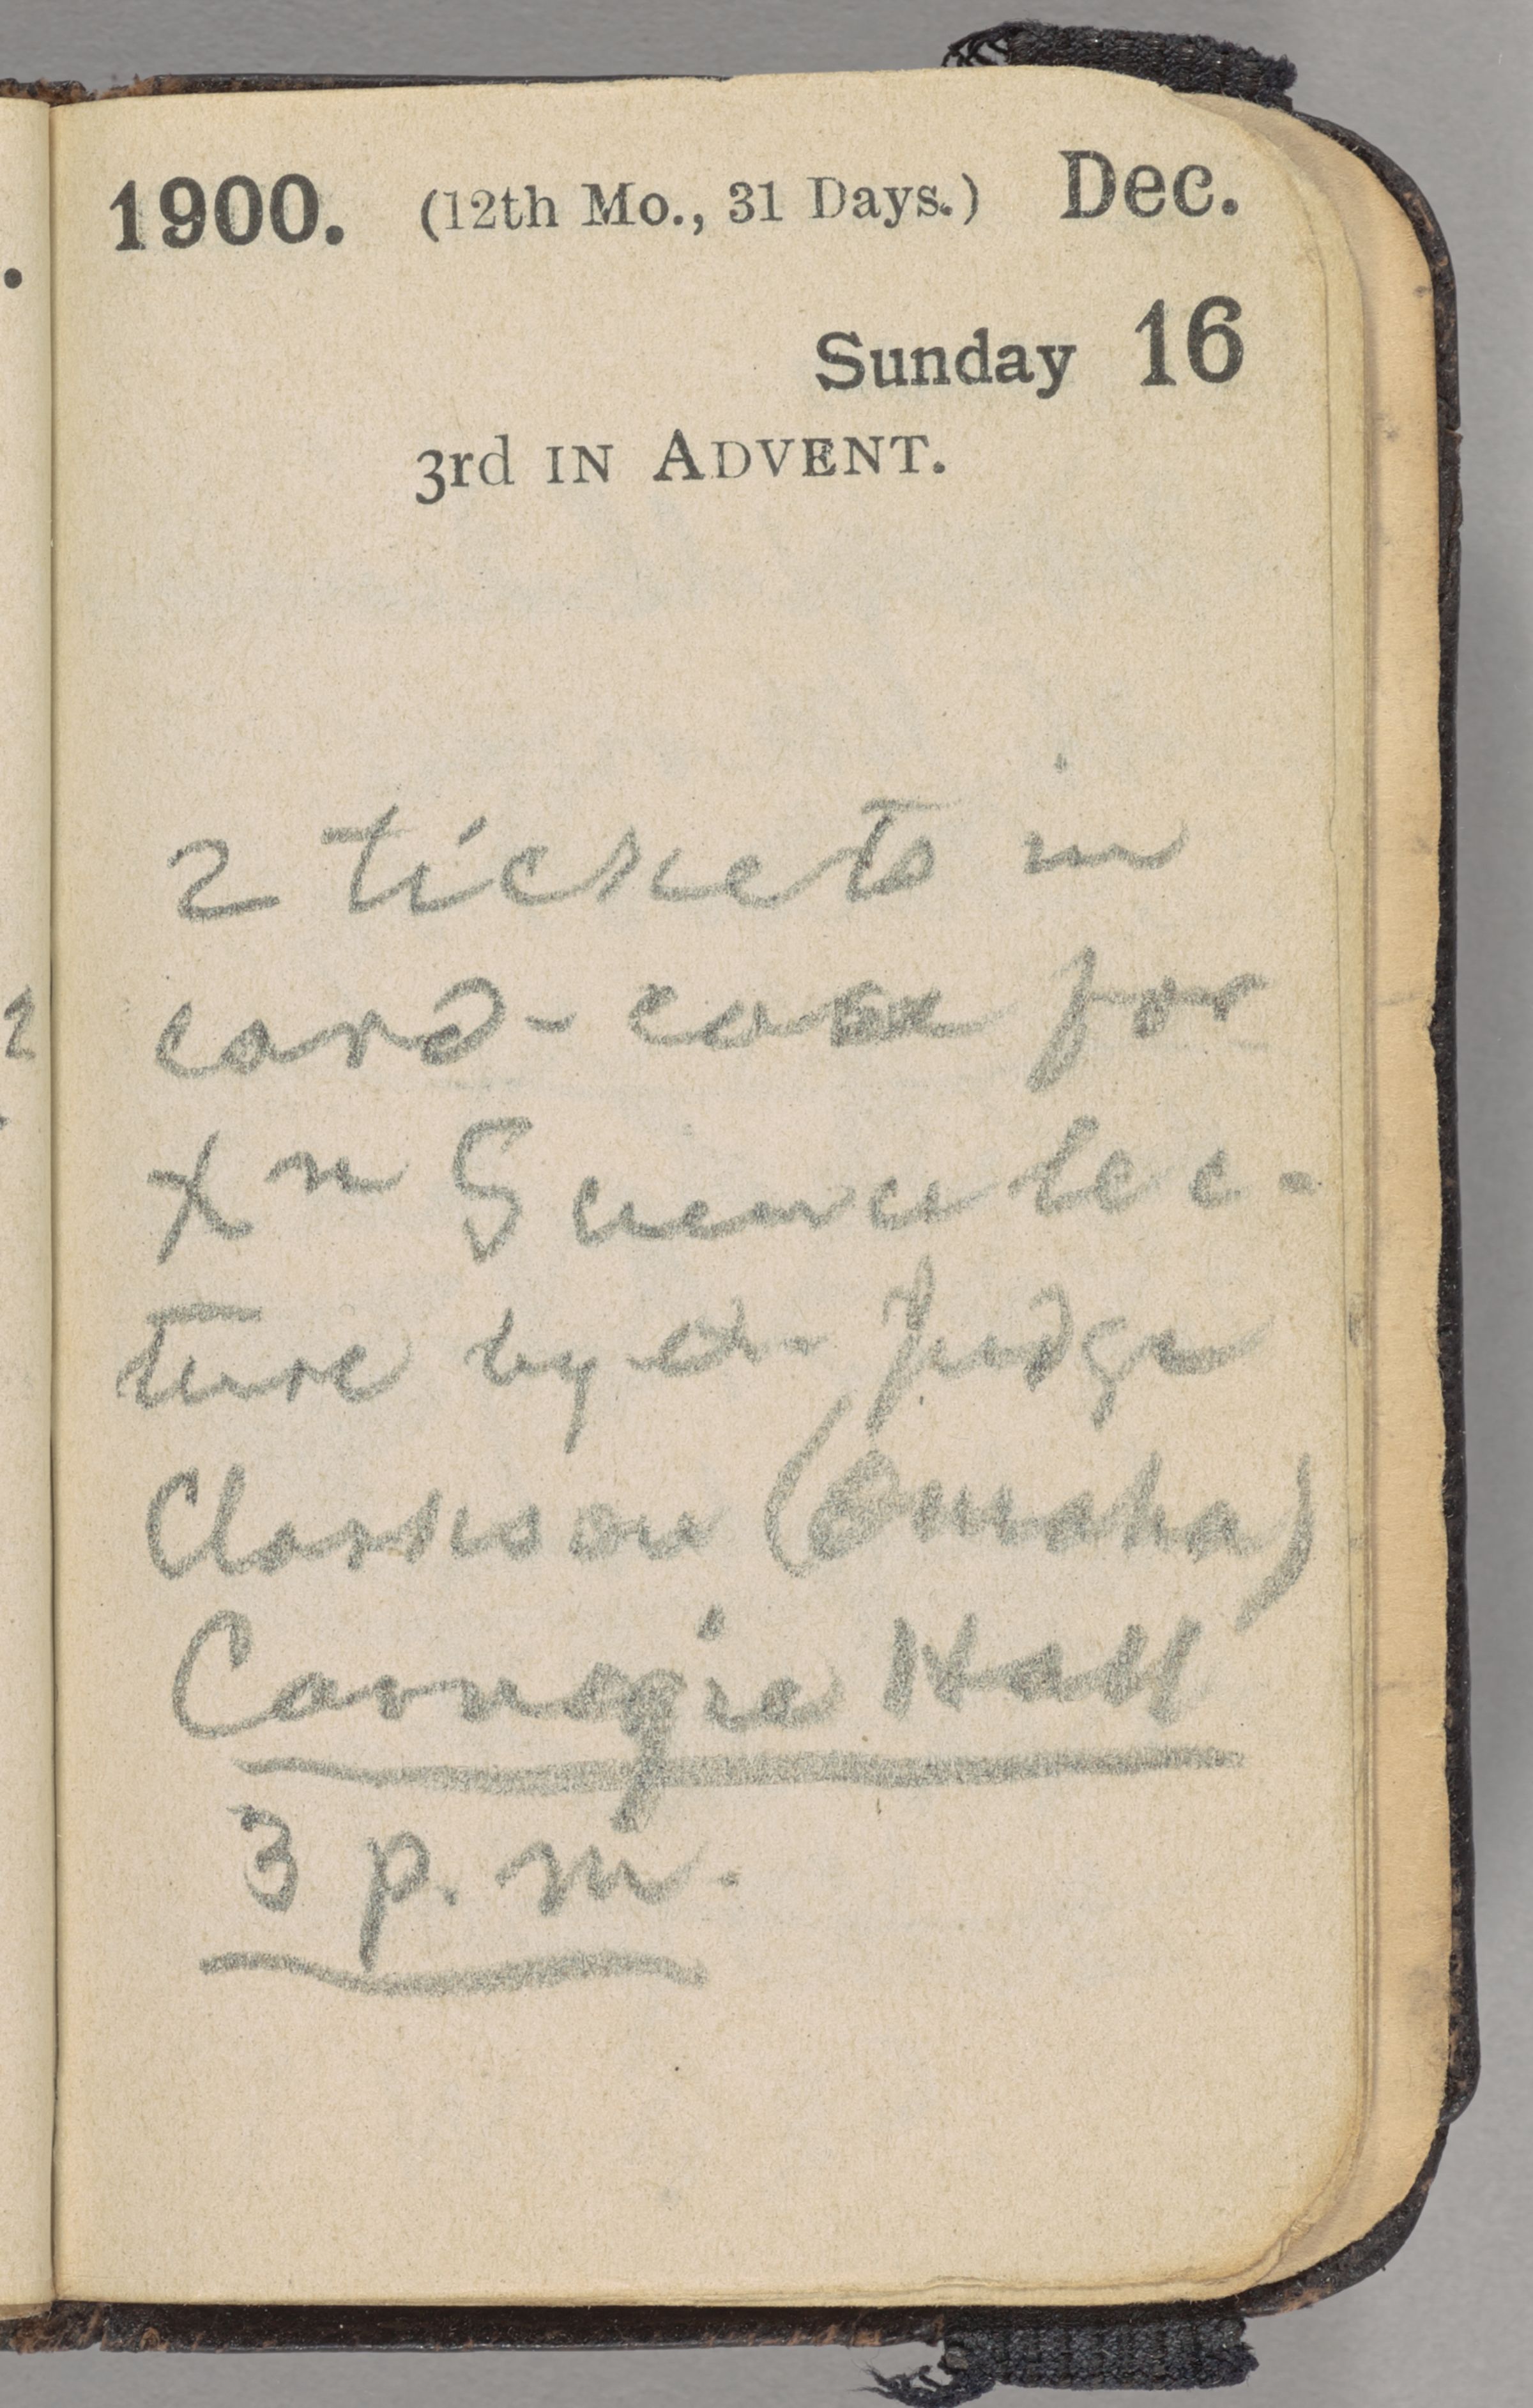 1900. (12th Mo., 31 Days.) Dec.
Sunday 16
3rd IN ADVENT.
2 tickets in
card-case for
Xn Science lec-
ture by ex-Judge
Clarkson (Omaha)
Carnegie Hall
3 p.m.